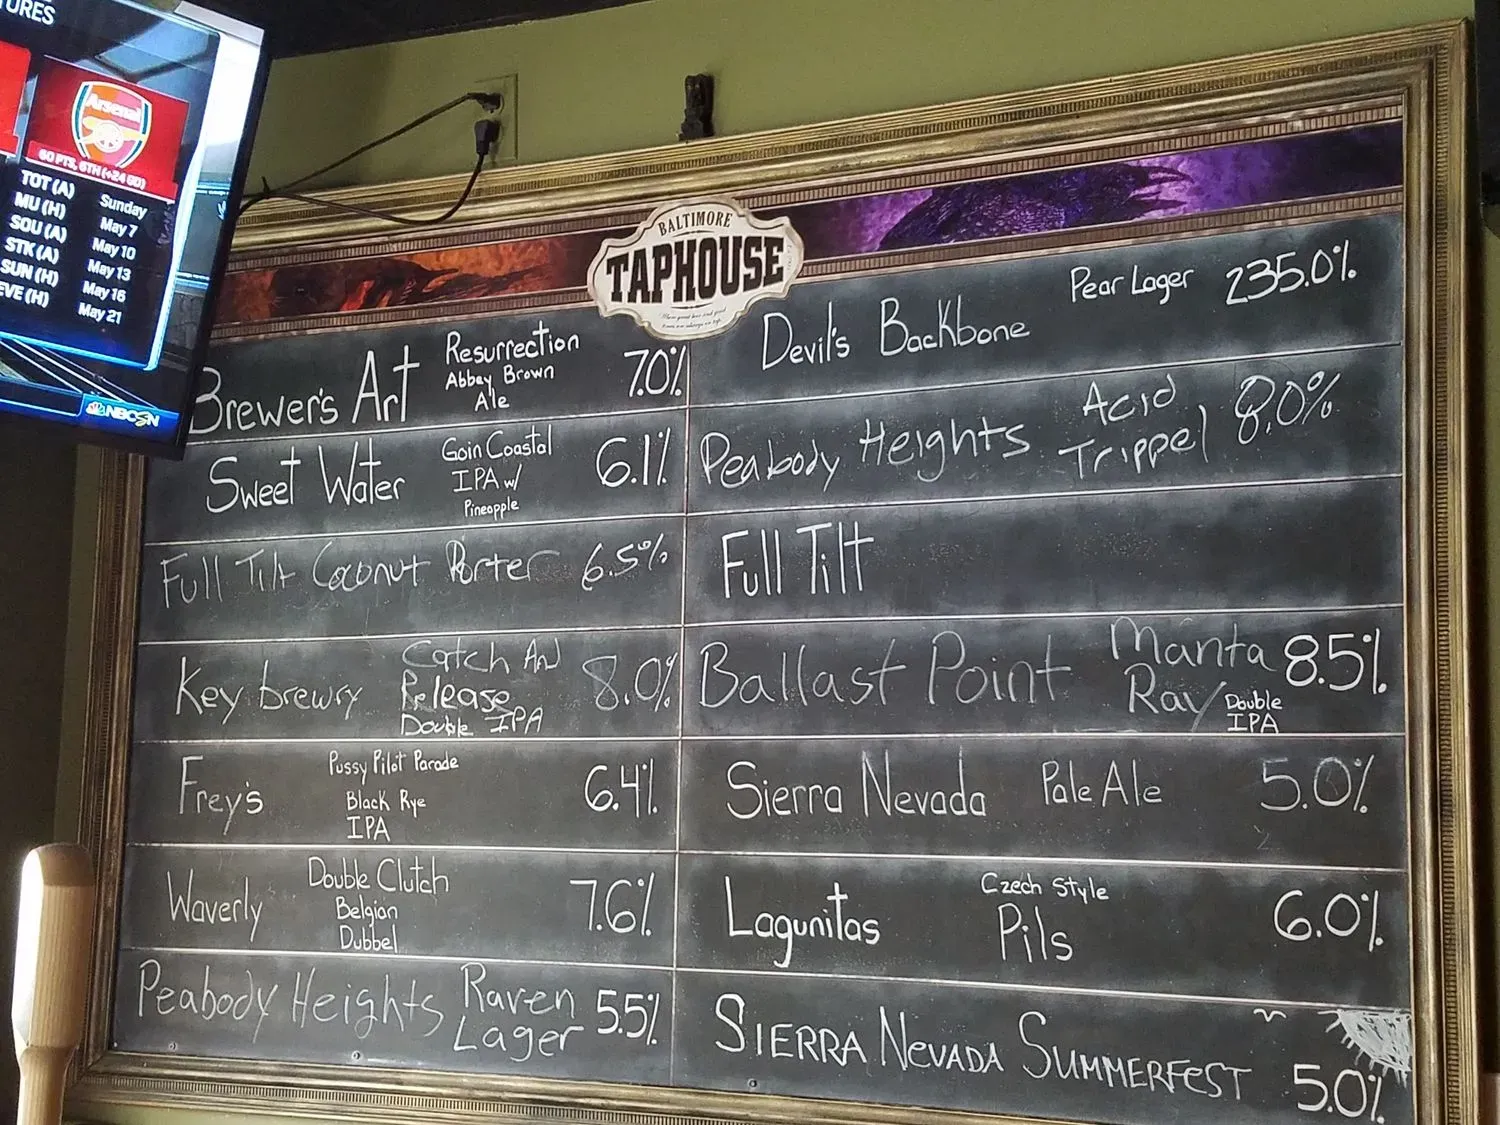 TURES
Arsenal
60 PTS, 6TH (+24 GD)
TOT (A) Sunday
MU (H) May 7
SOU (A) May 10
STK (A) May 13
SUN (H) May 16
EVE (H) May 21
NBCSN
BALTIMORE
TAPHOUSE
Brewer's Art
Resurrection
Abbey Brown
Ale
7.0%
Sweet Water
Goin Coastal
IPA w/
Pineapple
6.1%
Full Tilt Coconut Porter 6.5%
Key brewry
Catch And
Release
Double IPA
8.0%
Frey's
Pussy Pilot Parade
Black Rye
IPA
6.4%
Waverly
Double Clutch
Belgian
Dubbel
7.6%
Peabody Heights
Raven
Lager
5.5%
Devil's Backbone Pear Lager 235.0%
Peabody Heights
Acid
Trippel
8.0%
Full Tilt
Ballast Point
Manta
Ray
Double
IPA
8.5%
Sierra Nevada Pale Ale 5.0%
Lagunitas
Czech Style
Pils
6.0%
SIERRA NEVADA SUMMERFEST 5.0%